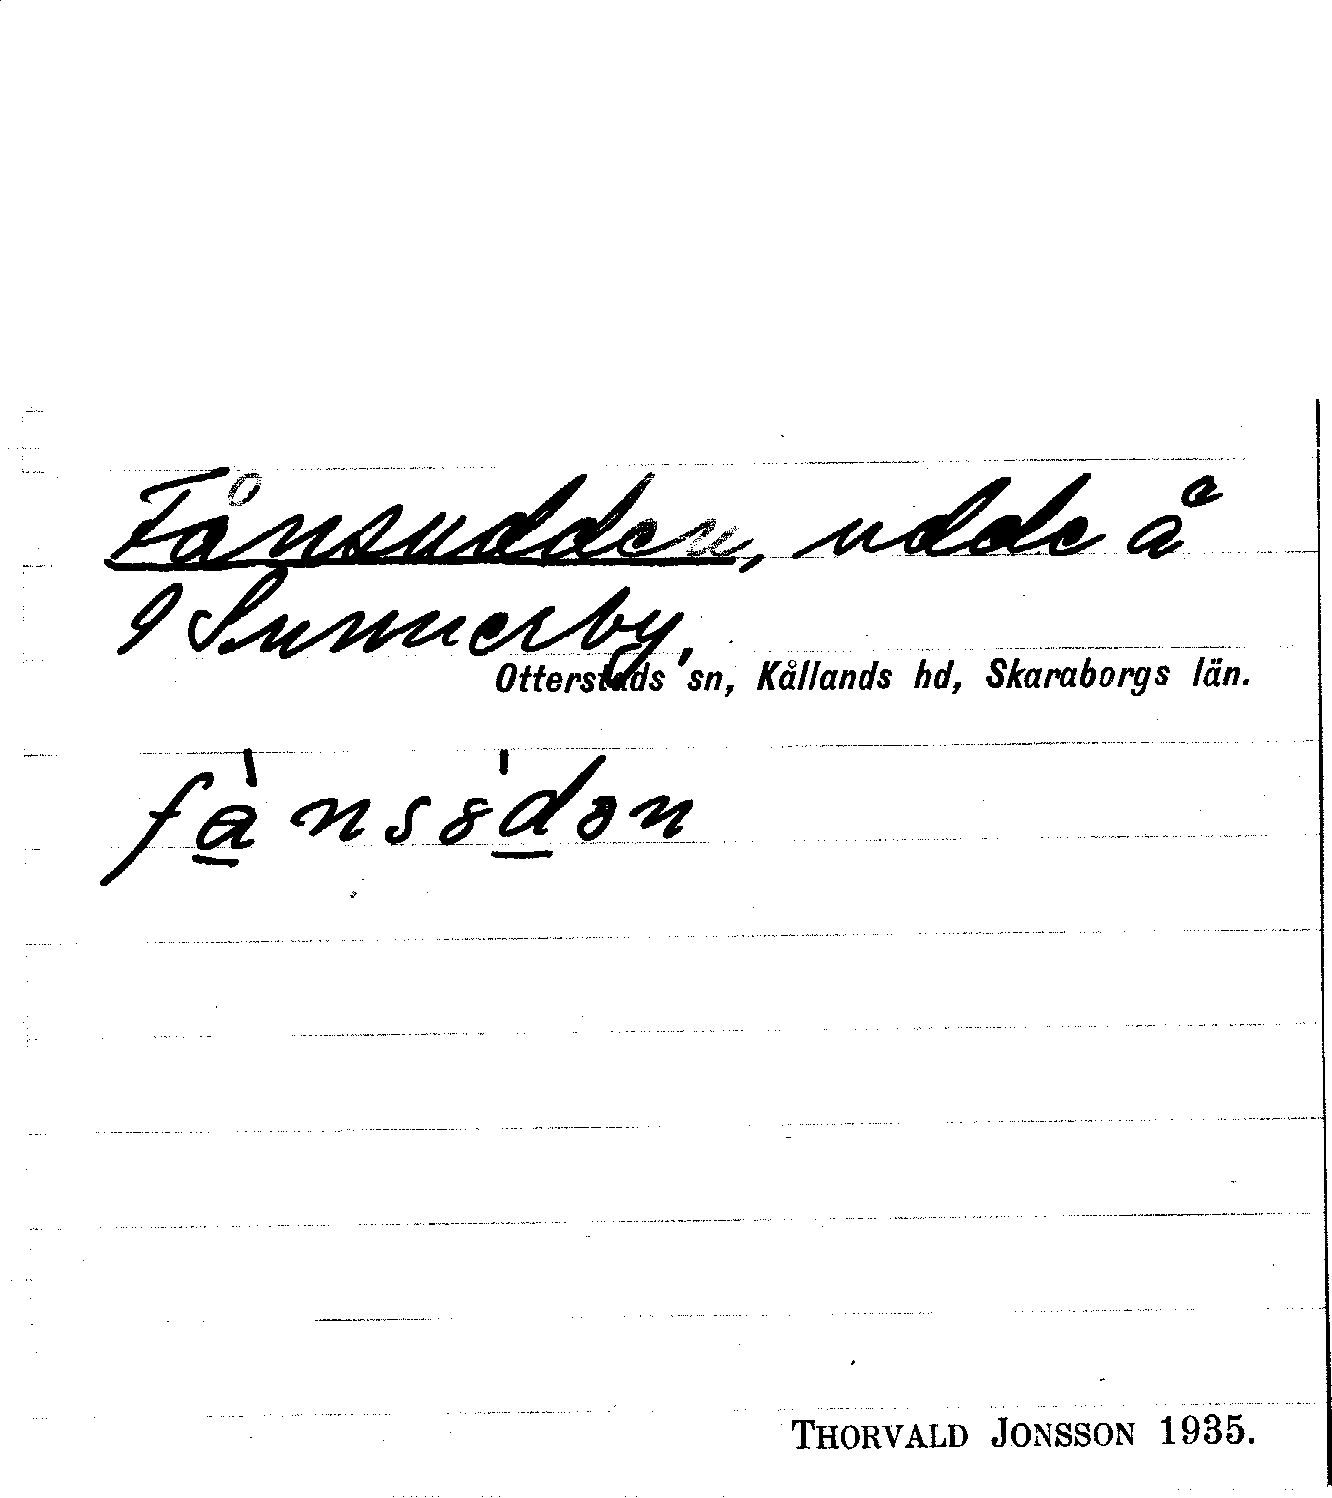 Fånsudden, udde å
I Sunnerby,
Otterstads sn, Kållands hd, Skaraborgs län.
fànsȣ'dən
THORVALD JONSSON 1935.